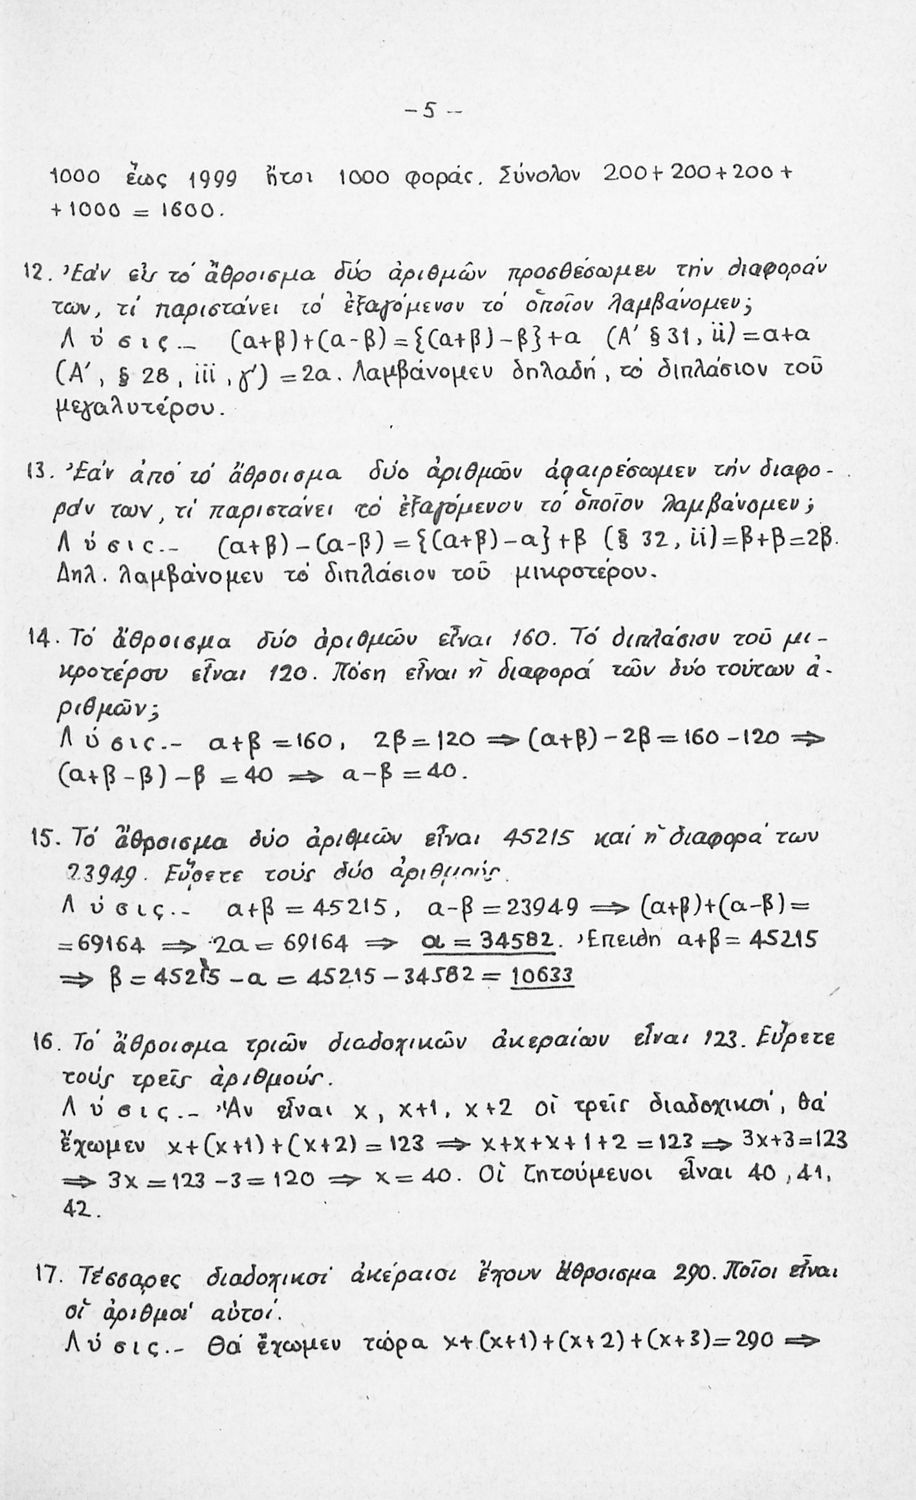 - 5 -
1000 ἕως 1999 ἤτοι 1000 φοράς. Σύνολον 200+200+200+
+1000 = 1600.
12. Ἐάν εἰς τό ἄθροισμα δύο ἀριθμῶν προσθέσωμεν τήν διαφοράν
των, τί παριστάνει τό ἐξαγόμενον τό ὁποῖον λαμβάνομεν;
Λ ύ σ ι ς.- (α+β)+(α-β)={(α+β)-β}+α (Α' § 31, ii)=α+α
(Α', § 28, iii, γ') =2α. Λαμβάνομεν δηλαδή, τό διπλάσιον τοῦ
μεγαλυτέρου.
13. Ἐάν ἀπό τό ἄθροισμα δύο ἀριθμῶν ἀφαιρέσωμεν τήν διαφο-
ράν των, τί παριστάνει τό ἐξαγόμενον τό ὁποῖον λαμβάνομεν;
Λ ύ σ ι ς.- (α+β)-(α-β)={(α+β)-α}+β (§ 32, ii)=β+β=2β.
Δηλ. λαμβάνομεν τό διπλάσιον τοῦ μικροτέρου.
14. Τό ἄθροισμα δύο ἀριθμῶν εἶναι 160. Τό διπλάσιον τοῦ μι-
κροτέρου εἶναι 120. Πόση εἶναι ἡ διαφορά τῶν δύο τούτων ἀ-
ριθμῶν;
Λ ύ σ ι ς.- α+β =160, 2β=120 ⇒ (α+β)-2β=160-120 ⇒
(α+β-β)-β =40 ⇒ α-β =40.
15. Τό ἄθροισμα δύο ἀριθμῶν εἶναι 45215 καί ἡ διαφορά των
23949. Εὕρετε τούς δύο ἀριθμούς.
Λ ύ σ ι ς.- α+β = 45215, α-β =23949 ⇒ (α+β)+(α-β)=
=69164 ⇒ 2α= 69164 ⇒ α = 34582. Ἐπειδή α+β= 45215
⇒ β = 45215 -α = 45215-34582 = 10633
16. Τό ἄθροισμα τριῶν διαδοχικῶν ἀκεραίων εἶναι 123. Εὕρετε
τούς τρεῖς ἀριθμούς.
Λ ύ σ ι ς.- Ἄν εἶναι x, x+1, x+2 οἱ τρεῖς διαδοχικοί, θά
ἔχωμεν x+(x+1)+(x+2)=123 ⇒ x+x+x+1+2 =123 ⇒ 3x+3=123
⇒ 3x =123-3=120 ⇒ x=40. Οἱ ζητούμενοι εἶναι 40, 41,
42.
17. Τέσσαρες διαδοχικοί ἀκέραιοι ἔχουν ἄθροισμα 290. Ποῖοι εἶναι
οἱ ἀριθμοί αὐτοί.
Λ ύ σ ι ς.- Θά ἔχωμεν τώρα x+(x+1)+(x+2)+(x+3)=290 ⇒